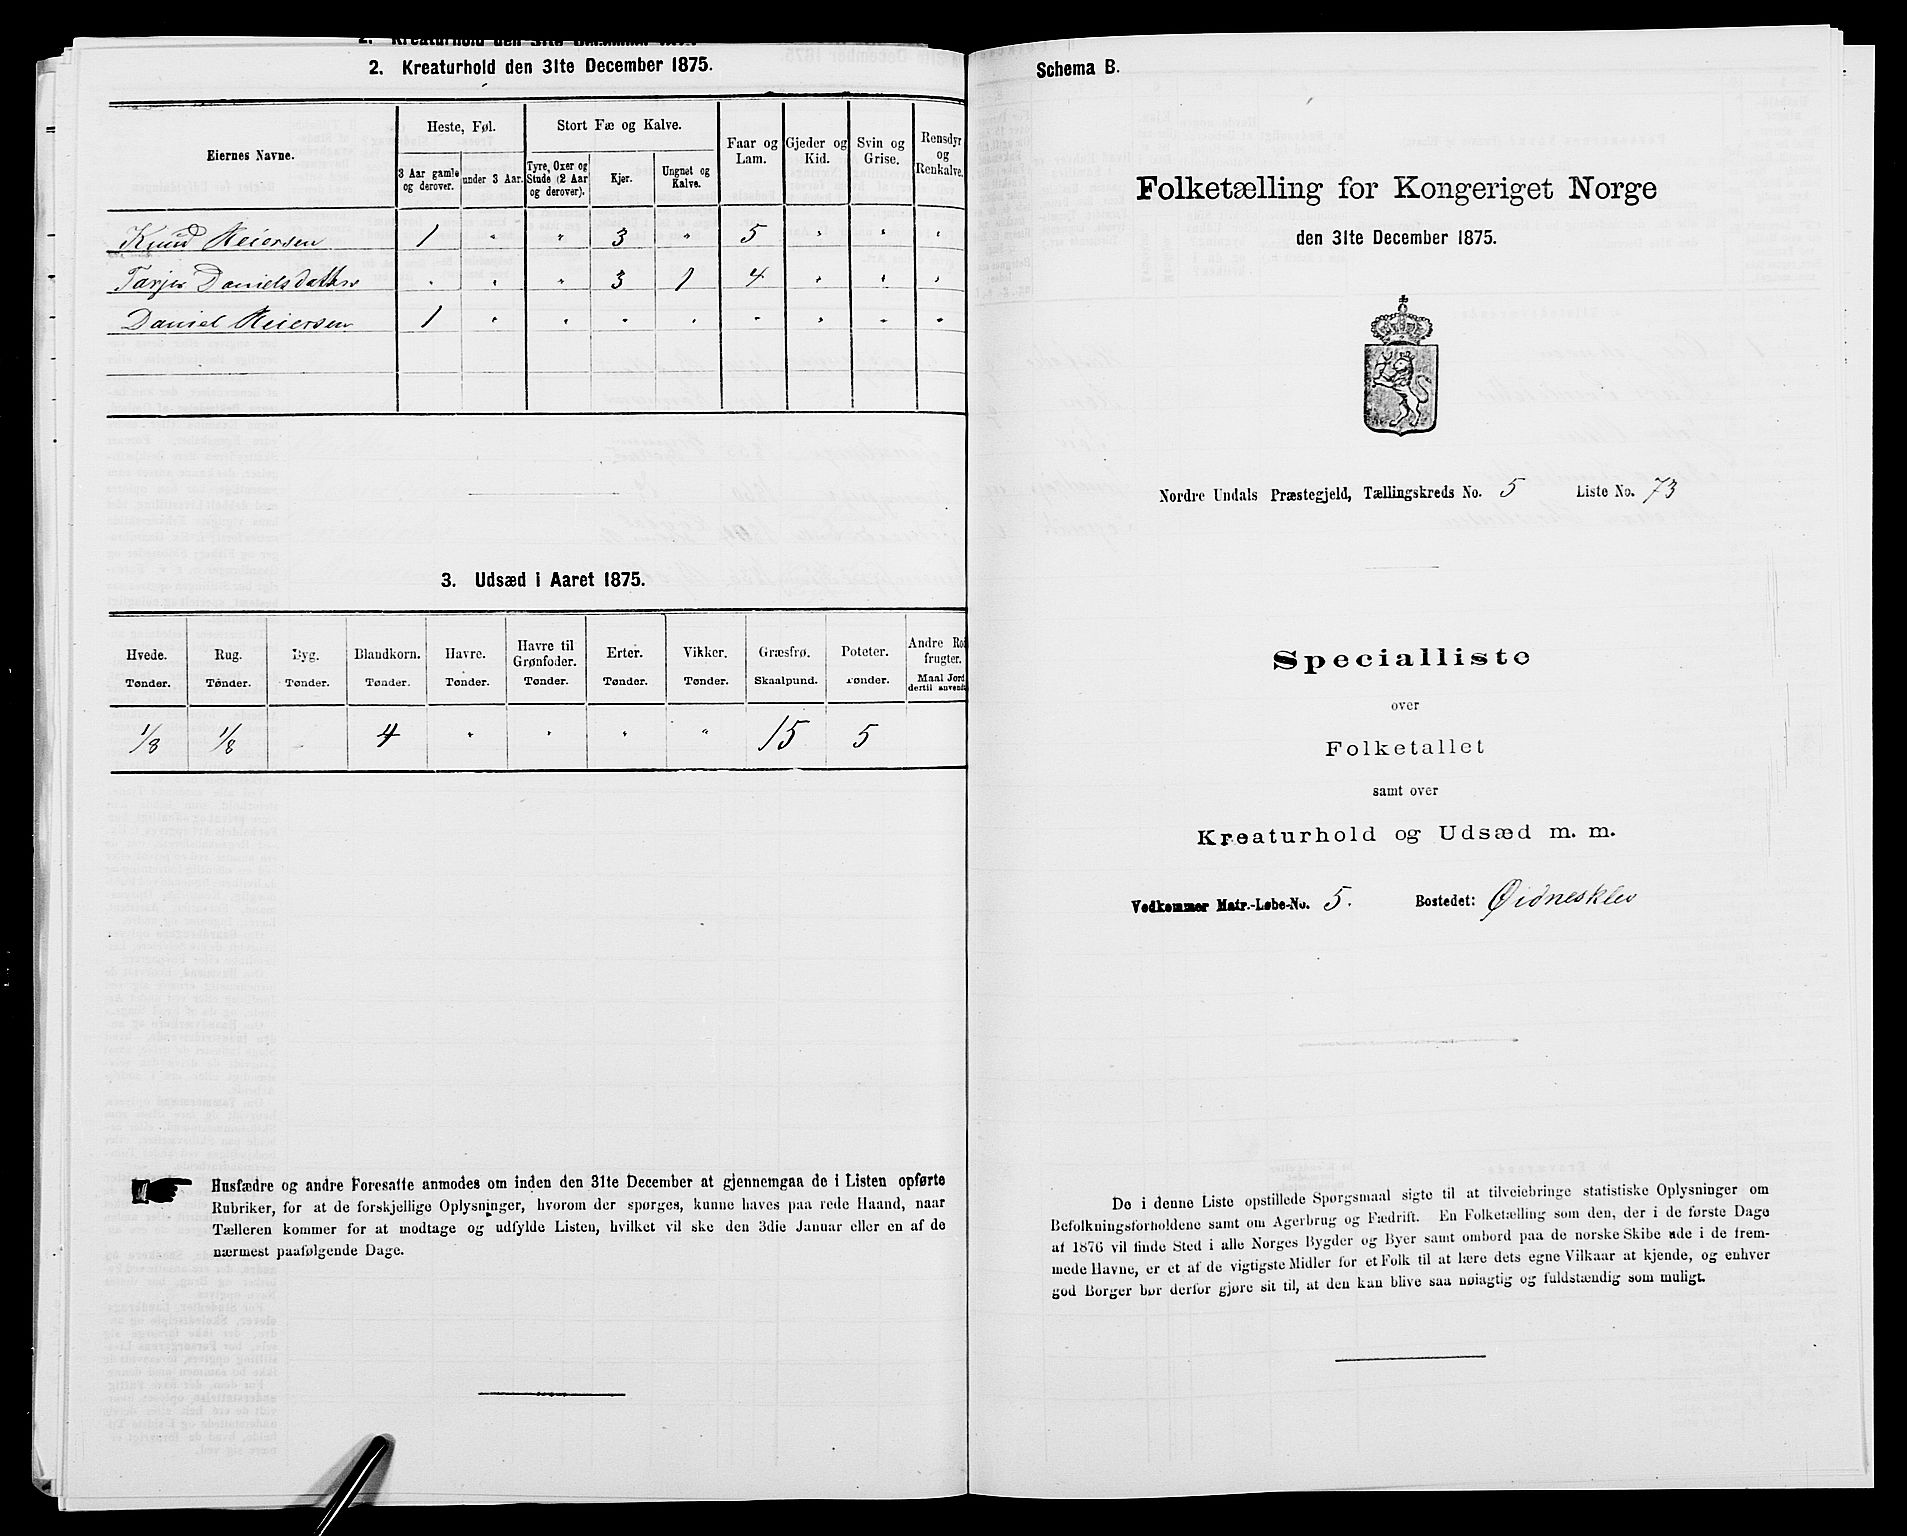 2. Kreaturhold den 31te December 1875.
Eiernes Navne.
Heste, Føl.
Stort Fæ og Kalve.
Faar og Lam.
Gjeder og Kid.
Svin og Grise.
Rensdyr og Renkalve.
3 Aar gamle og derover.
under 3 Aar.
Tyre, Oxer og Stude (2 Aar og derover).
Kjer.
Ungnet og Kalve.
Knud Reiersen 1 " " 3 " 5 " " "
Tarjer Danielsdatter " " " 3 1 4 " " "
Daniel Reiersen 1 " " " " " " " "
3. Udsæd i Aaret 1875.
Hvede. Rug. Byg. Blandkorn. Havre. Havre til Grønfoder. Erter. Vikker. Græsfrø. Poteter. Andre Ro frugter.
Tønder. Tønder. Tønder. Tønder. Tønder. Tønder. Tønder. Tønder. Skaalpund. Tønder. Maal Jord dertil anvendt
1/8 1/8 4 " " " " 15 5
Husfædre og andre Foresatte anmodes om inden den 31te December at gjennemgaa de i Listen opførte
Rubriker, for at de forskjellige Oplysninger, hvorom der spørges, kunne haves paa rede Haand, naar
Tælleren kommer for at modtage og udfylde Listen, hvilket vil ske den 3die Januar eller en af de
nærmest paafølgende Dage.
Schema B.
Folketælling for Kongeriget Norge
den 31te December 1875.
Nordre Undals Præstegjeld, Tællingskreds No. 5 Liste No. 73
Specialliste
over
Folketallet
samt over
Kreaturhold og Udsæd m. m.
Vedkommer Matr.-Løbe-No. 5. Bostedet: Øidnesklev
De i denne Liste opstillede Spørgsmaal sigte til at tilveiebringe statistiske Oplysninger om
Befolkningsforholdene samt om Agerbrug og Fædrift. En Folketælling som den, der i de første Dage
af 1876 vil finde Sted i alle Norges Bygder og Byer samt ombord paa de norske Skibe ude i de frem-
mede Havne, er et af de vigtigste Midler for et Folk til at lære dets egne Vilkaar at kjende, og enhver
god Borger bør derfor gjøre sit til, at den kan blive saa nøiagtig og fuldstændig som muligt.